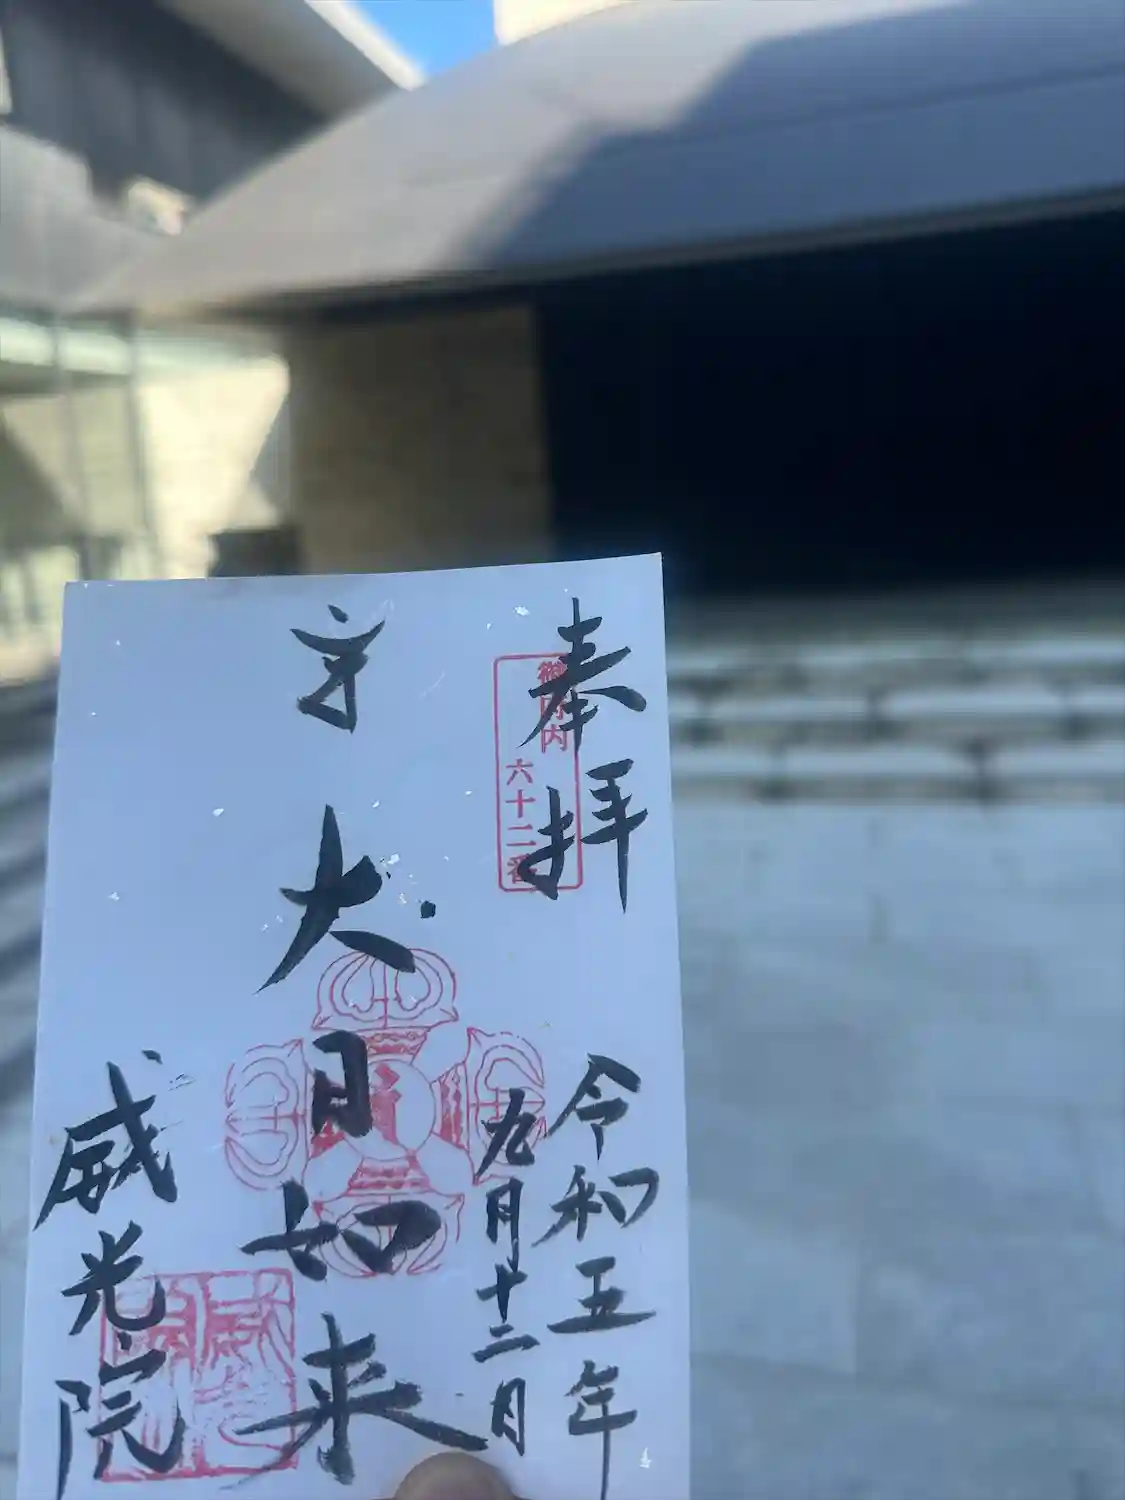 奉拝
御府内
六十二番
令和五年
九月十二日
大日如来
威光院